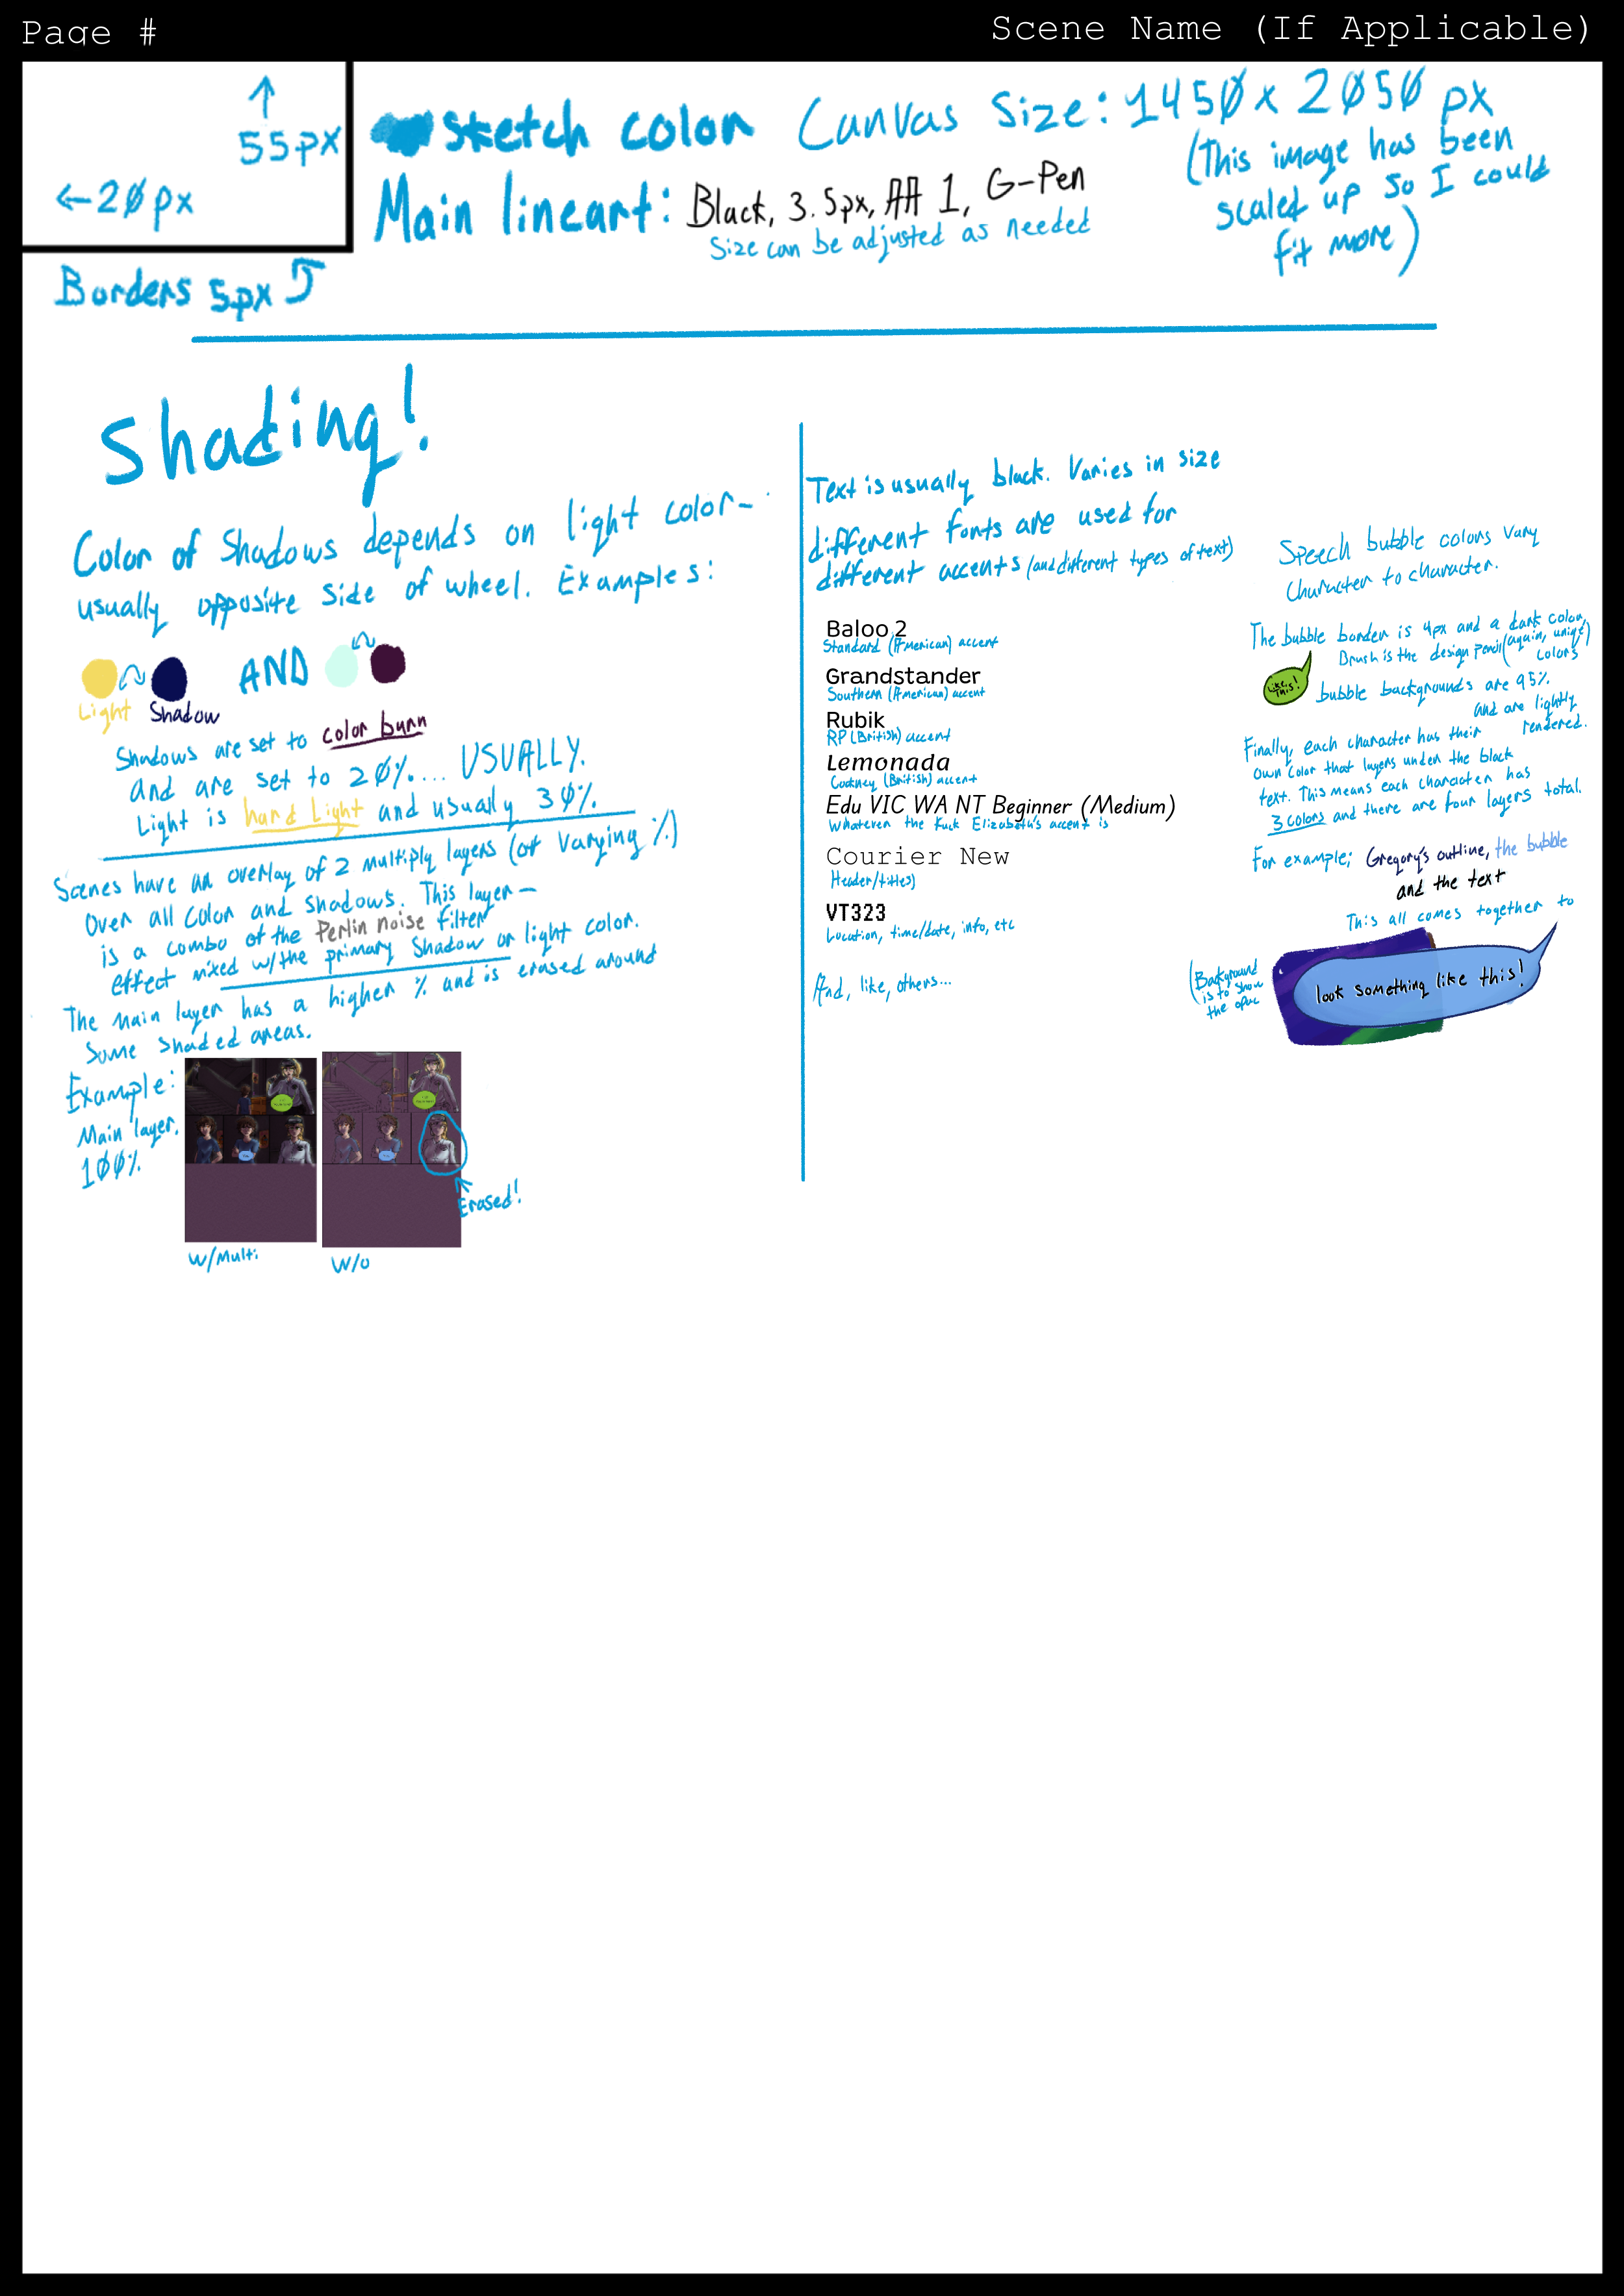 Page #
Scene Name (If Applicable)
↑
55px
←20px
Borders 5px
sketch color
Canvas Size: 1450 x 2050 px
(This image has been
scaled up so I could
fit more)
Main lineart: Black, 3.5px, AA 1, G-Pen
Size can be adjusted as needed
Shading!
Color of Shadows depends on light color-
usually opposite side of wheel. Examples:
Light
Shadow
AND
Shadows are set to color burn
and are set to 20%.... USUALLY.
Light is hard Light and usually 30%.
Scenes have an overlay of 2 multiply layers (of varying %)
over all color and shadows. This layer-
is a combo of the Perlin noise filter
effect mixed w/the primary shadow or light color.
The main layer has a higher % and is erased around
some shaded areas.
Example:
Main layer.
100%
w/Multi
W/o
Erased!
Text is usually black. Varies in size
different fonts are used for
different accents (and different types of text)
Baloo 2
Standard (American) accent
Grandstander
Southern (American) accent
Rubik
RP (British) accent
Lemonada
Cockney (British) accent
Edu VIC WA NT Beginner (Medium)
Whatever the fuck Elizabeth's accent is
Courier New
Header/titles)
VT323
Location, time/date, info, etc
And, like, others...
Speech bubble colors vary
Character to character.
The bubble border is 4px and a dark color,
Brush is the design pencil (again, unique
colors)
Like This!
bubble backgrounds are 95%
and are lightly
rendered.
Finally, each character has their
own color that layers under the black
text. This means each character has
3 colors and there are four layers total.
For example; Gregory's outline, the bubble
and the text
This all comes together to
look something like this!
(Background
is to show
the opac